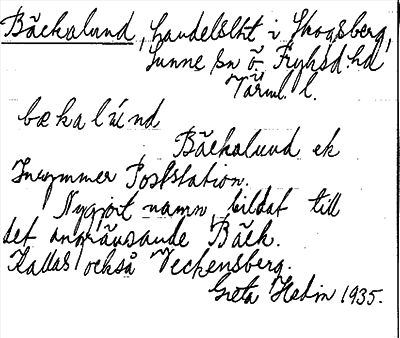 Bäckalund, handelslht i Skogsberg,
Sunne sn Ö Fryksd hd
Värml. l.
bækalúnd
Bäckalund ek
Inrymmer Poststation.
Nygjort namn, bildat till
det angränsande Bäck.
Kallas också Veckensberg.
Greta Hedin 1935.